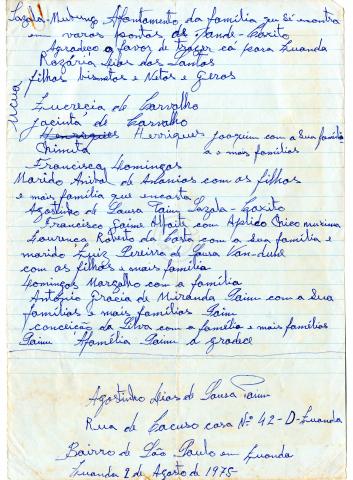 Sazala-Mubungo Afantamento da família que si encontra
em varas pontas de Dande-Caxito
Agradeço a favor de trazer cá para Luanda
Rozária Dias dos Santos
filhos bismetos e Netos e Geros
Lucrecia de Carvalho
Jacinta de Carvalho
Henriques Henriques Joaquim com a Sua família
Chimuta a e mais famílias
Francisca Domingos
Marido Anibal de Antonios com os filhos
e mais família que encosta
Agostinho de Sausa Paim Sazala-Caxito
Francisco Jaime com Chico muxima
Lourença Roberto da Costa com a Sua família e
marido Luiz Pereira de Sausa Van-dune
com os filhos e mais família
Domingos Margalho com a família
António Gracia de Miranda Paim com a Sua
famílias e mais famílias Paim
conceição da Silva com a família e mais famílias
Paim Afamília Paim a gradece
Agostinho Dias de Sausa Paim
Rua de Cacuso casa Nº 42-D-Luanda
Bairro de São Paulo em Luanda
Luanda 2 de Agosto de 1975